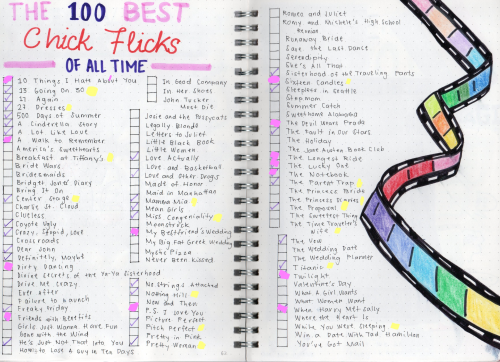 THE 100 BEST
Chick Flicks
OF ALL TIME
10 Things I Hate About You
13 Going On 30
17 Again
27 Dresses
500 Days of Summer
A Cinderella Story
A Lot Like Love
A Walk to Remember
America's Sweethearts
Breakfast at Tiffany's
Bride Wars
Bridesmaids
Bridget Jones' Diary
Bring It On
Center Stage
Charlie St. Cloud
Clueless
Coyote Ugly
Crazy, Stupid, Love
Crossroads
Dear John
Definitely, Maybe
Dirty Dancing
Divine Secrets of the Ya-Ya Sisterhood
Drive Me Crazy
Ever After
Failure to Launch
Freaky Friday
Friends with Benefits
Girls Just Wanna Have Fun
Gone With the Wind
He's Just Not That Into You
How to Lose A Guy in Ten Days
In Good Company
In Her Shoes
John Tucker
Must Die
Josie and the Pussycats
Legally Blonde
Letters to Juliet
Little Black Book
Little Women
Love Actually
Love and Basketball
Love and Other Drugs
Made of Honor
Maid in Manhattan
Mamma Mia
Mean Girls
Miss Congeniality
Moonstruck
My Bestfriend's Wedding
My Big Fat Greek Wedding
Mystic Pizza
Never Been Kissed
No Strings Attached
Notting Hill
Now and Then
P.S. I Love You
Picture Perfect
Pitch Perfect
Pretty in Pink
Pretty Woman
Romeo and Juliet
Romy and Michele's High School
Reunion
Runaway Bride
Save the Last Dance
Serendipity
She's All That
Sisterhood of the Traveling Pants
Sixteen Candles
Sleepless in Seattle
Stepmom
Summer Catch
Sweet Home Alabama
The Devil Wears Prada
The Fault in Our Stars
The Holiday
The Jane Austen Book Club
The Longest Ride
The Lucky One
The Notebook
The Parent Trap
The Princess Bride
The Princess Diaries
The Proposal
The Sweetest Thing
The Time Traveler's
Wife
The Vow
The Wedding Date
The Wedding Planner
Titanic
Twilight
Valentine's Day
What A Girl Wants
What Women Want
When Harry Met Sally
Where the Heart Is
While You Were Sleeping
Win a Date With Tad Hamilton
You've Got Mail